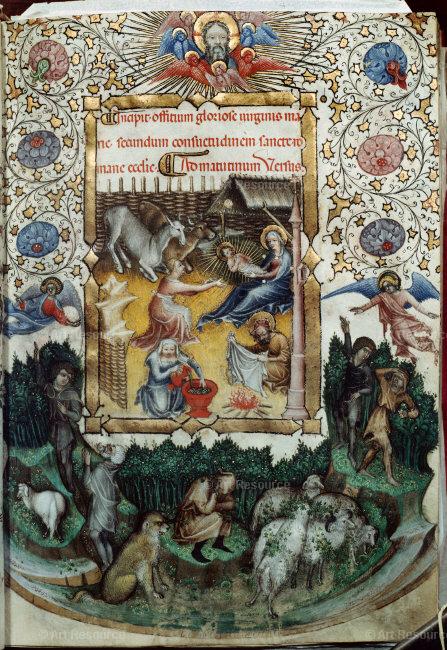 Incipit officium gloriose virginis ma
rie. secundum consuetudinem sancte ro
mane ecclie. Ad matutinum Versus.
Art Resource
© Art Resource
© Art Resource